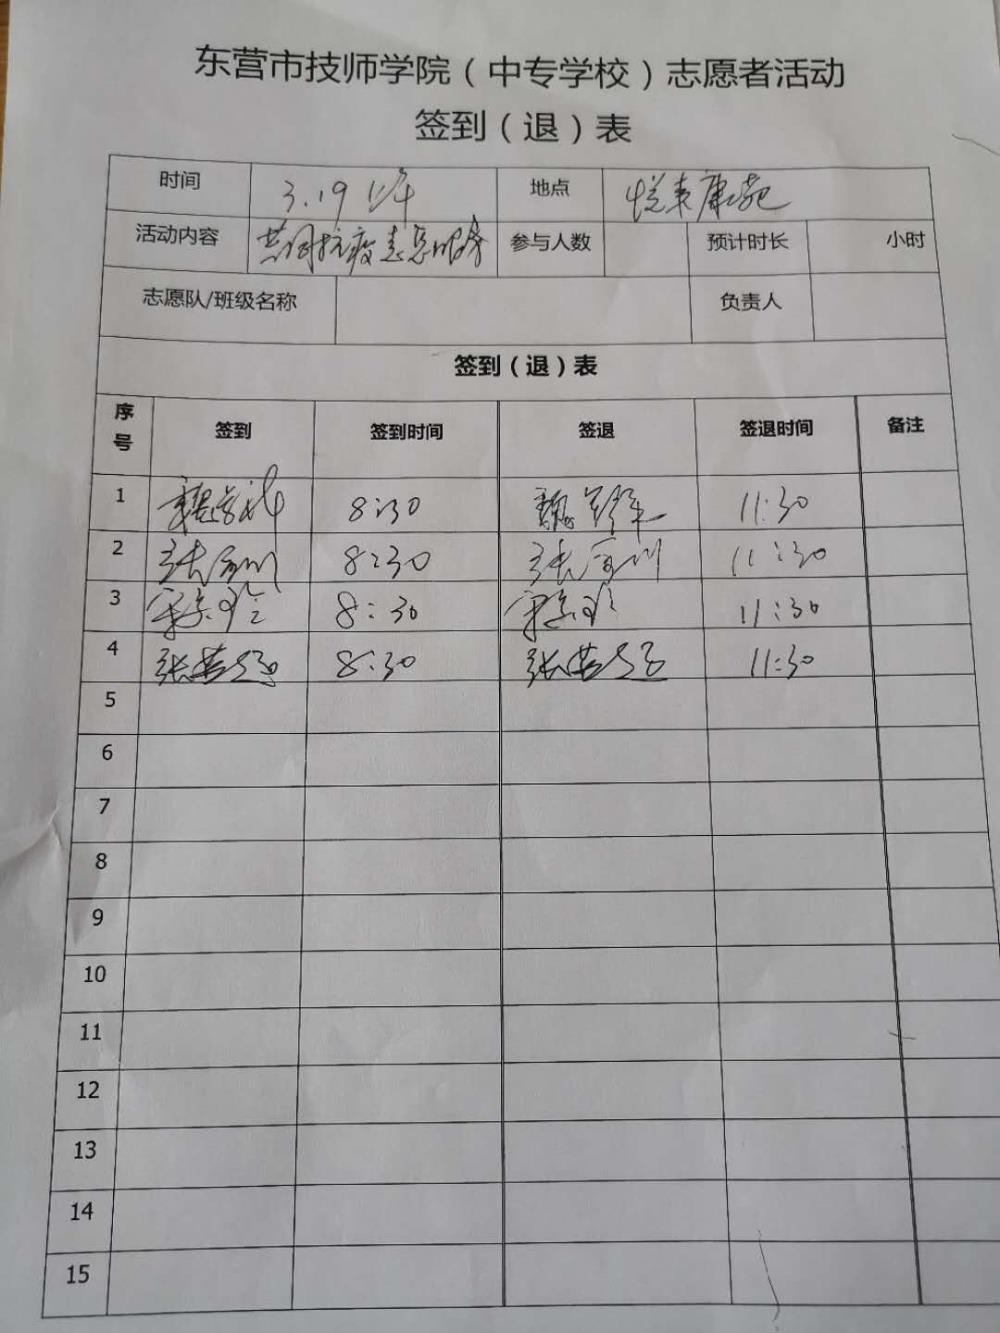 东营市技师学院（中专学校）志愿者活动
签到（退）表
时间 3.19 上午 地点 悦来康苑
活动内容 共同抗疫志愿服务 参与人数 预计时长 小时
志愿队/班级名称 负责人
签到（退）表
序号 签到 签到时间 签退 签退时间 备注
1 8:30 11:30
2 张 8:30 张 11:30
3 8:30 11:30
4 张 8:30 张 11:30
5
6
7
8
9
10
11
12
13
14
15